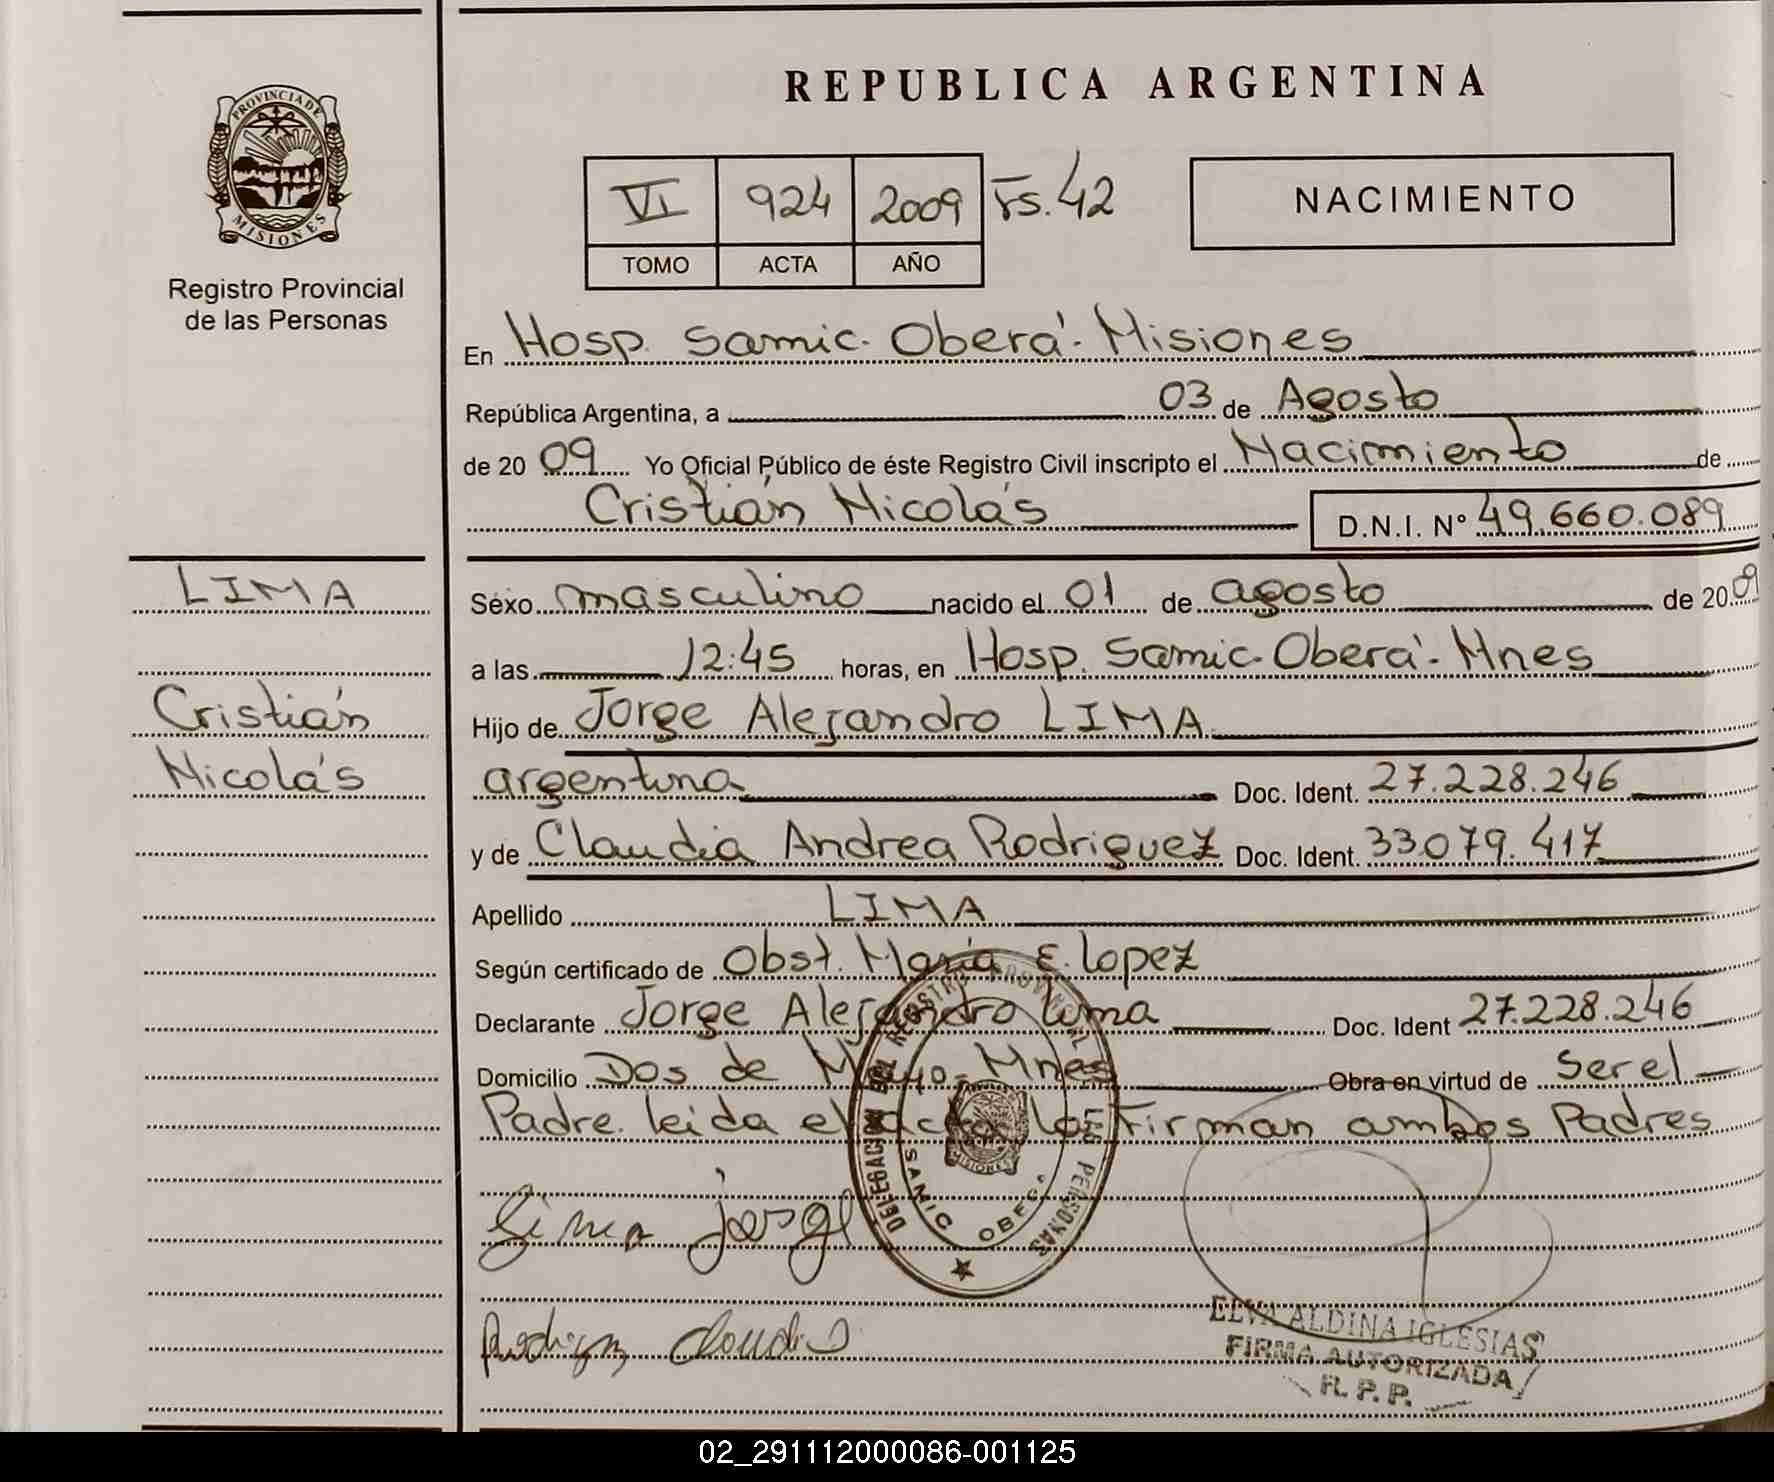 REPUBLICA ARGENTINA
PROVINCIA DE
MISIONES
Registro Provincial
de las Personas
VI 924 2009 Fs. 42
TOMO ACTA AÑO
NACIMIENTO
En Hosp. Samic. Oberá. Misiones
República Argentina, a 03 de Agosto
de 2009 Yo Oficial Público de éste Registro Civil inscripto el Nacimiento de
Cristián Nicolás D.N.I. Nº 49.660.089
LIMA
Cristián
Nicolás
Sexo masculino nacido el 01 de agosto de 2009
a las 12:45 horas, en Hosp. Samic. Oberá. Mnes
Hijo de Jorge Alejandro LIMA
argentina Doc. Ident. 27.228.246
y de Claudia Andrea Rodriguez Doc. Ident. 33.079.417
Apellido LIMA
Según certificado de Obst. María E. Lopez
Declarante Jorge Alejandro Lima Doc. Ident 27.228.246
Domicilio Dos de Mayo - Mnes Obra en virtud de Ser el
Padre. leida el acta la Firman ambos Padres
DELEGACION DEL REGISTRO PROVINCIAL DE LAS PERSONAS
MISIONES
SAMIC OBERA
Lima jorge
Claudia
ELVA ALDINA IGLESIAS
FIRMA AUTORIZADA
R. P. P.
02_291112000086-001125